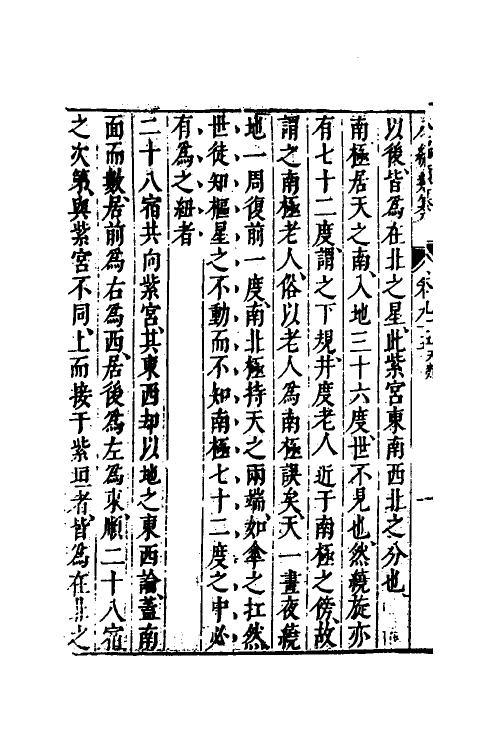 以後、皆為在北之星、此紫宮東南西北之分也、
南極居天之南、入地三十六度、世不見也、然繞旋亦
有七十二度、謂之下規、井度老人近于南極之傍、故
謂之南極老人、俗以老人為南極誤矣、天一晝夜繞
地一周復前一度、南北極持天之兩端、如傘之扛然、
世徒知樞星之不動而不知南極七十二度之中必
有為之紐者
二十八宿共向紫宮、其東西却以地之東西論、蓋南
面而數、居前為右為西、居後為左為東、順二十八宿
之次第、與紫宮不同、上而接于紫垣者、皆為在北之